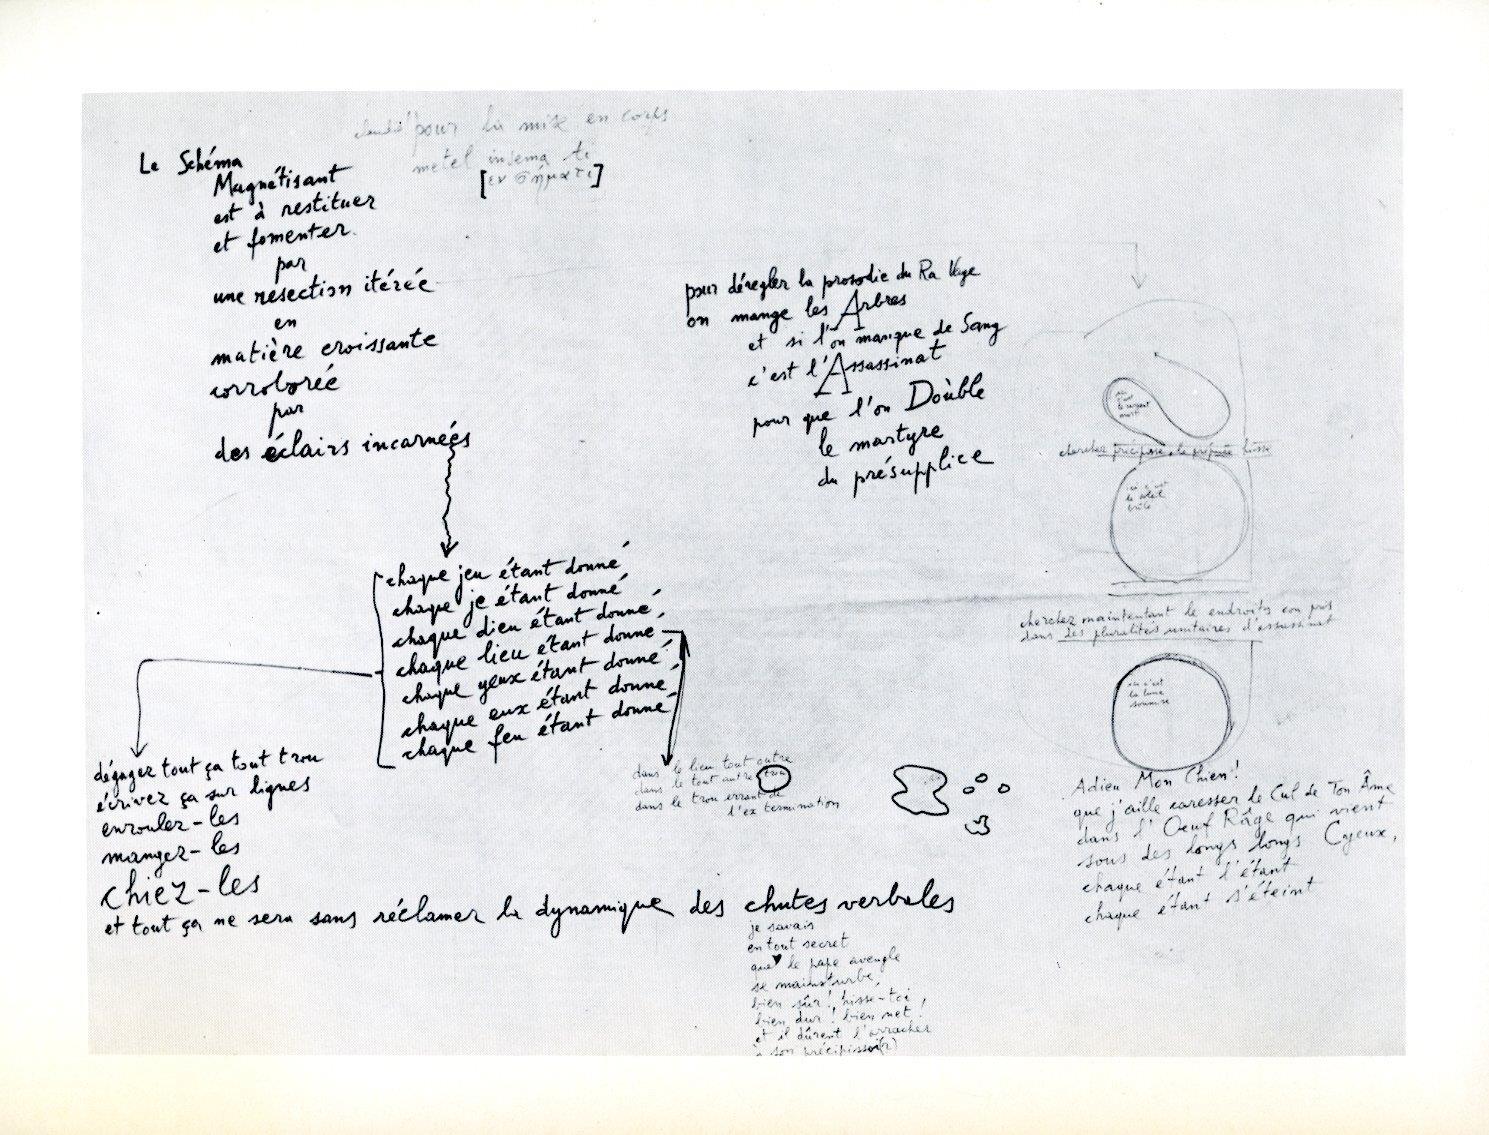 pour la mise en corps
[εν σήματι]
Le Schéma
Magnétisant
est à restituer
et fomenter
par
une resection itérée
en
matière croissante
corroborée
par
des éclairs incarneés
pour déregler la prosodie du Ra Vage
on mange les Arbres
et si l'on manque de Sang
c'est l'Assassinat
pour que l'on Doùble
le martyre
du présupplice
chaque jeu étant donné
chaque je étant donné
chaque dieu étant donné,
chaque lieu étant donné
chaque yeux étant donné
chaque eux étant donné,
chaque feu étant donné
dégagez tout ça tout trou
écrivez ça sur lignes
enroulez-les
mangez-les
chiez-les
et tout ça ne sera sans réclamer la dynamique des chutes verbales
dans le lieu tout autre
dans le tout autre trou
dans le trou errant de
l'extermination
je savais
en tout secret
que le pape aveugle
se mains'turbe,
bien sûr! hisse-toi,
bien dur! bien net!
et il dûrent l'arracher
à son précipissoi(r)
cherchez
ici c'est
le soleil
brûlé
cherchez maintentant le endroits con pus
dans des pluralités unitaires d'assassinat
ici c'est
la lune
soumise
Adieu Mon Chien!
que j'aille caresser le Cul de Ton Âme
dans l'Oeuf Râge qui vient
sous des longs longs Cyeux,
chaque étant l'étant
chaque étant s'éteint